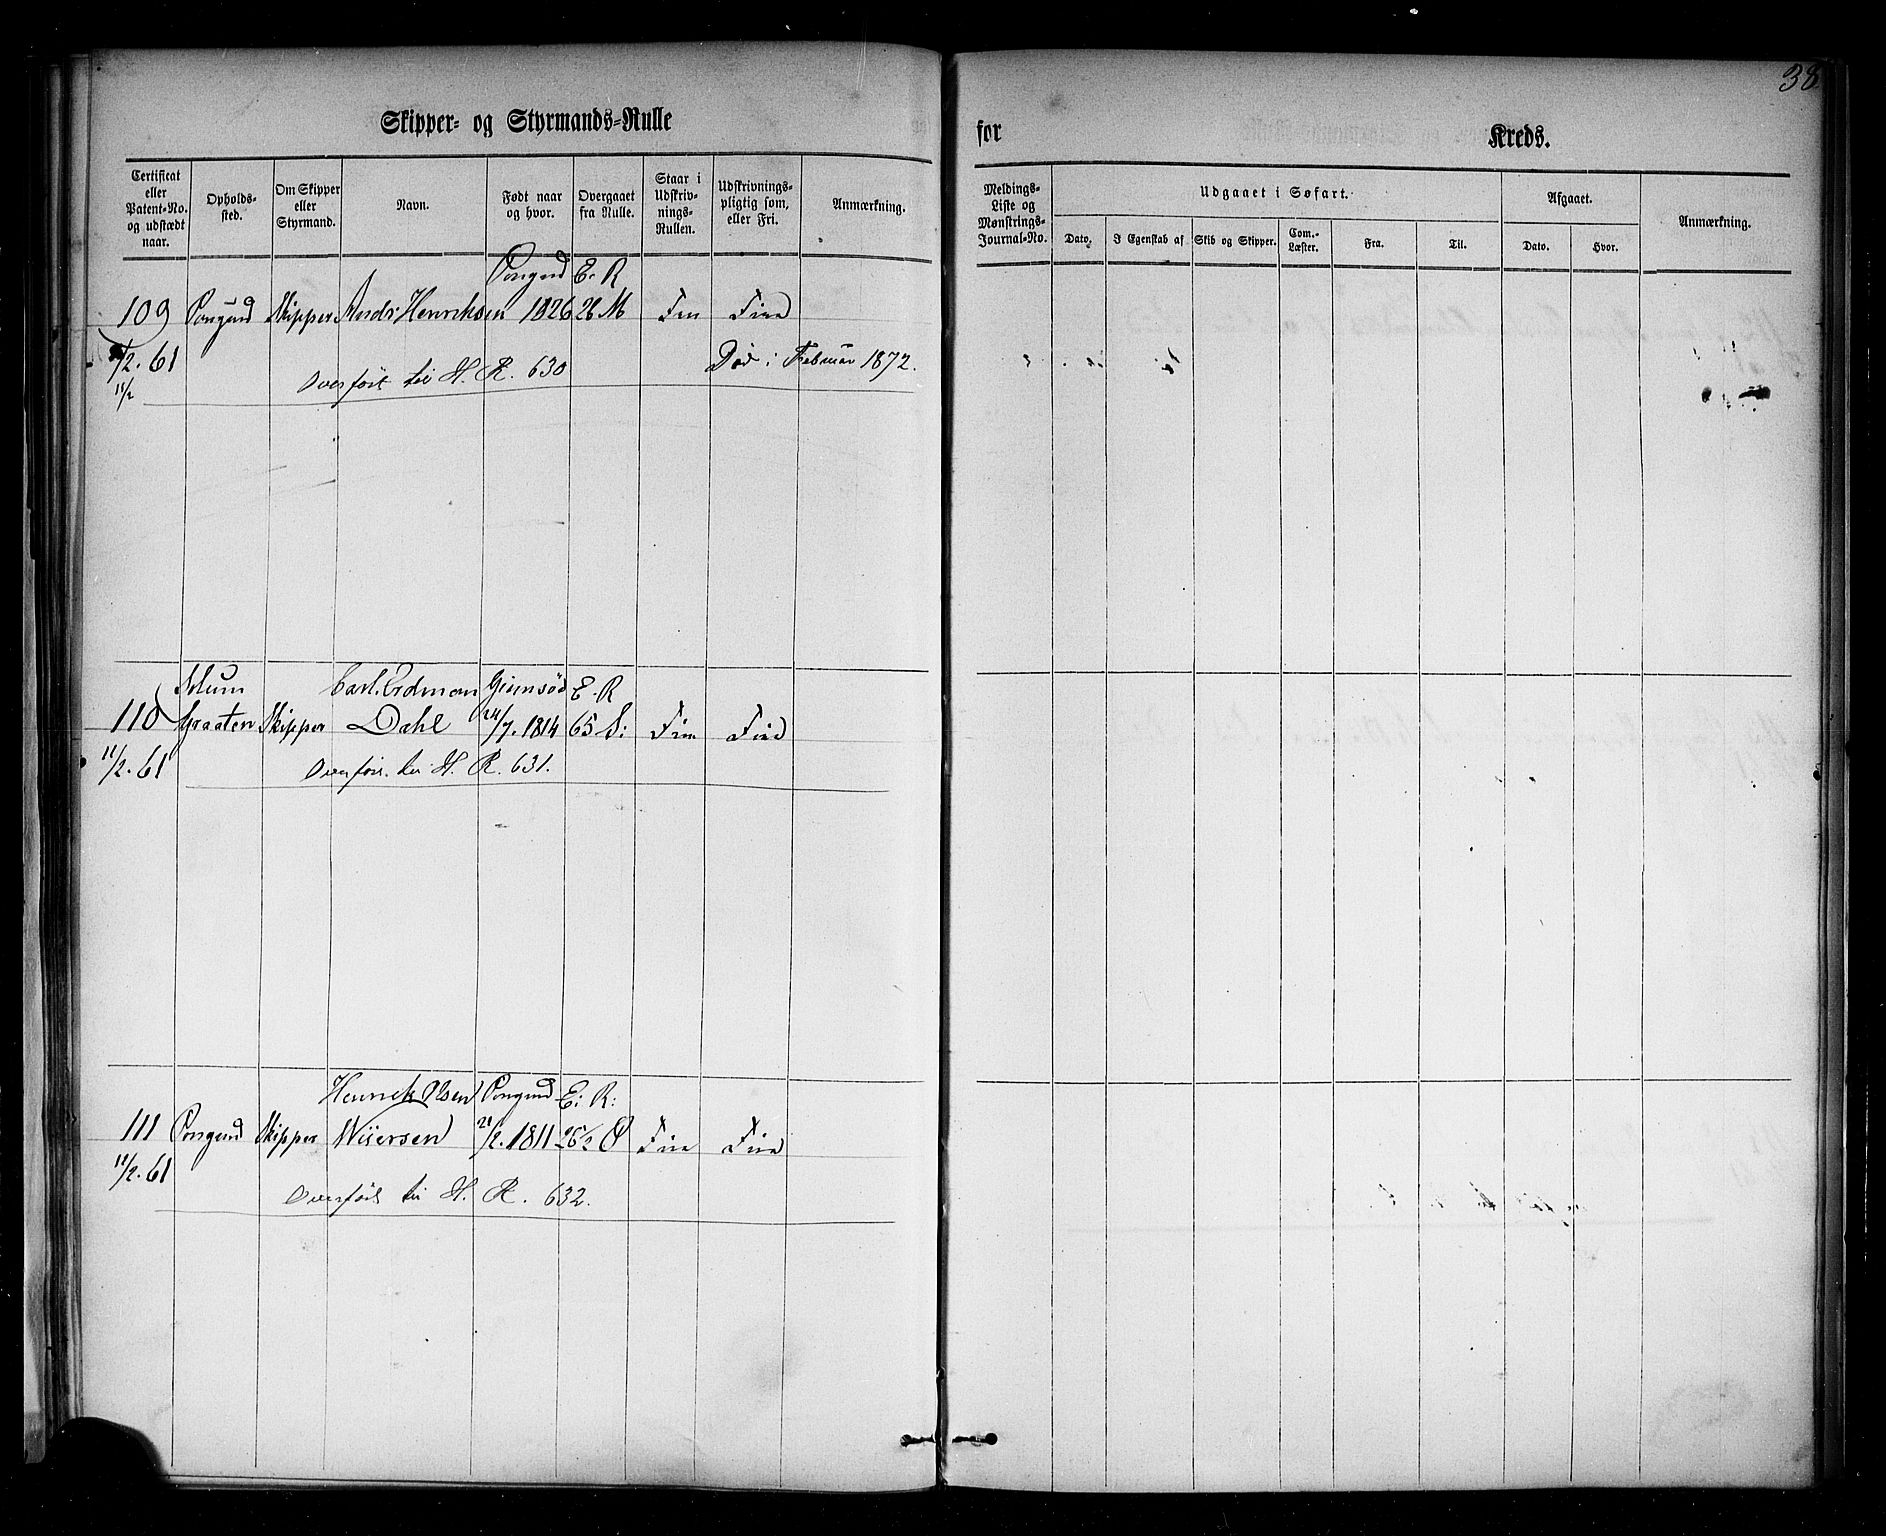 38
Skipper- og Styrmands-Rulle
for
Kreds.
Certificat eller Patent-No. og udstædt naar.
Opholdssted.
Om Skipper eller Styrmand.
Navn.
Født naar og hvor.
Overgaaet fra Rulle.
Staar i Udskrivnings-Rullen.
Udskrivningspligtig som, eller Fri.
Anmærkning.
Meldings-Liste og Mønstrings-Journal-No.
Udgaaet i Søfart.
Dato.
I Egenskab af
Skib og Skipper.
Com.-Læster.
Fra.
Til.
Afgaaet.
Dato.
Hvor.
Anmærkning.
Porsgrund E. R
109 Porsgrund Skipper Anders Henriksen 1826 26 M Frie Frie
/2. 61
11/2
Overført til H. R. 630
Død i Februar 1872.
Solum Carl Erdman Gimsöd E. R
110 Graaten Skipper Dahl 24/7. 1814 65 S: Frie Frie
11/2. 61
Overfør. til H. R. 631.
Henrik Olsen Porsgrund E: R:
111 Porsgrund Skipper Wiersen /2. 1811 26½ P Frie Frie
11/2. 61
Overført til H. R. 632.